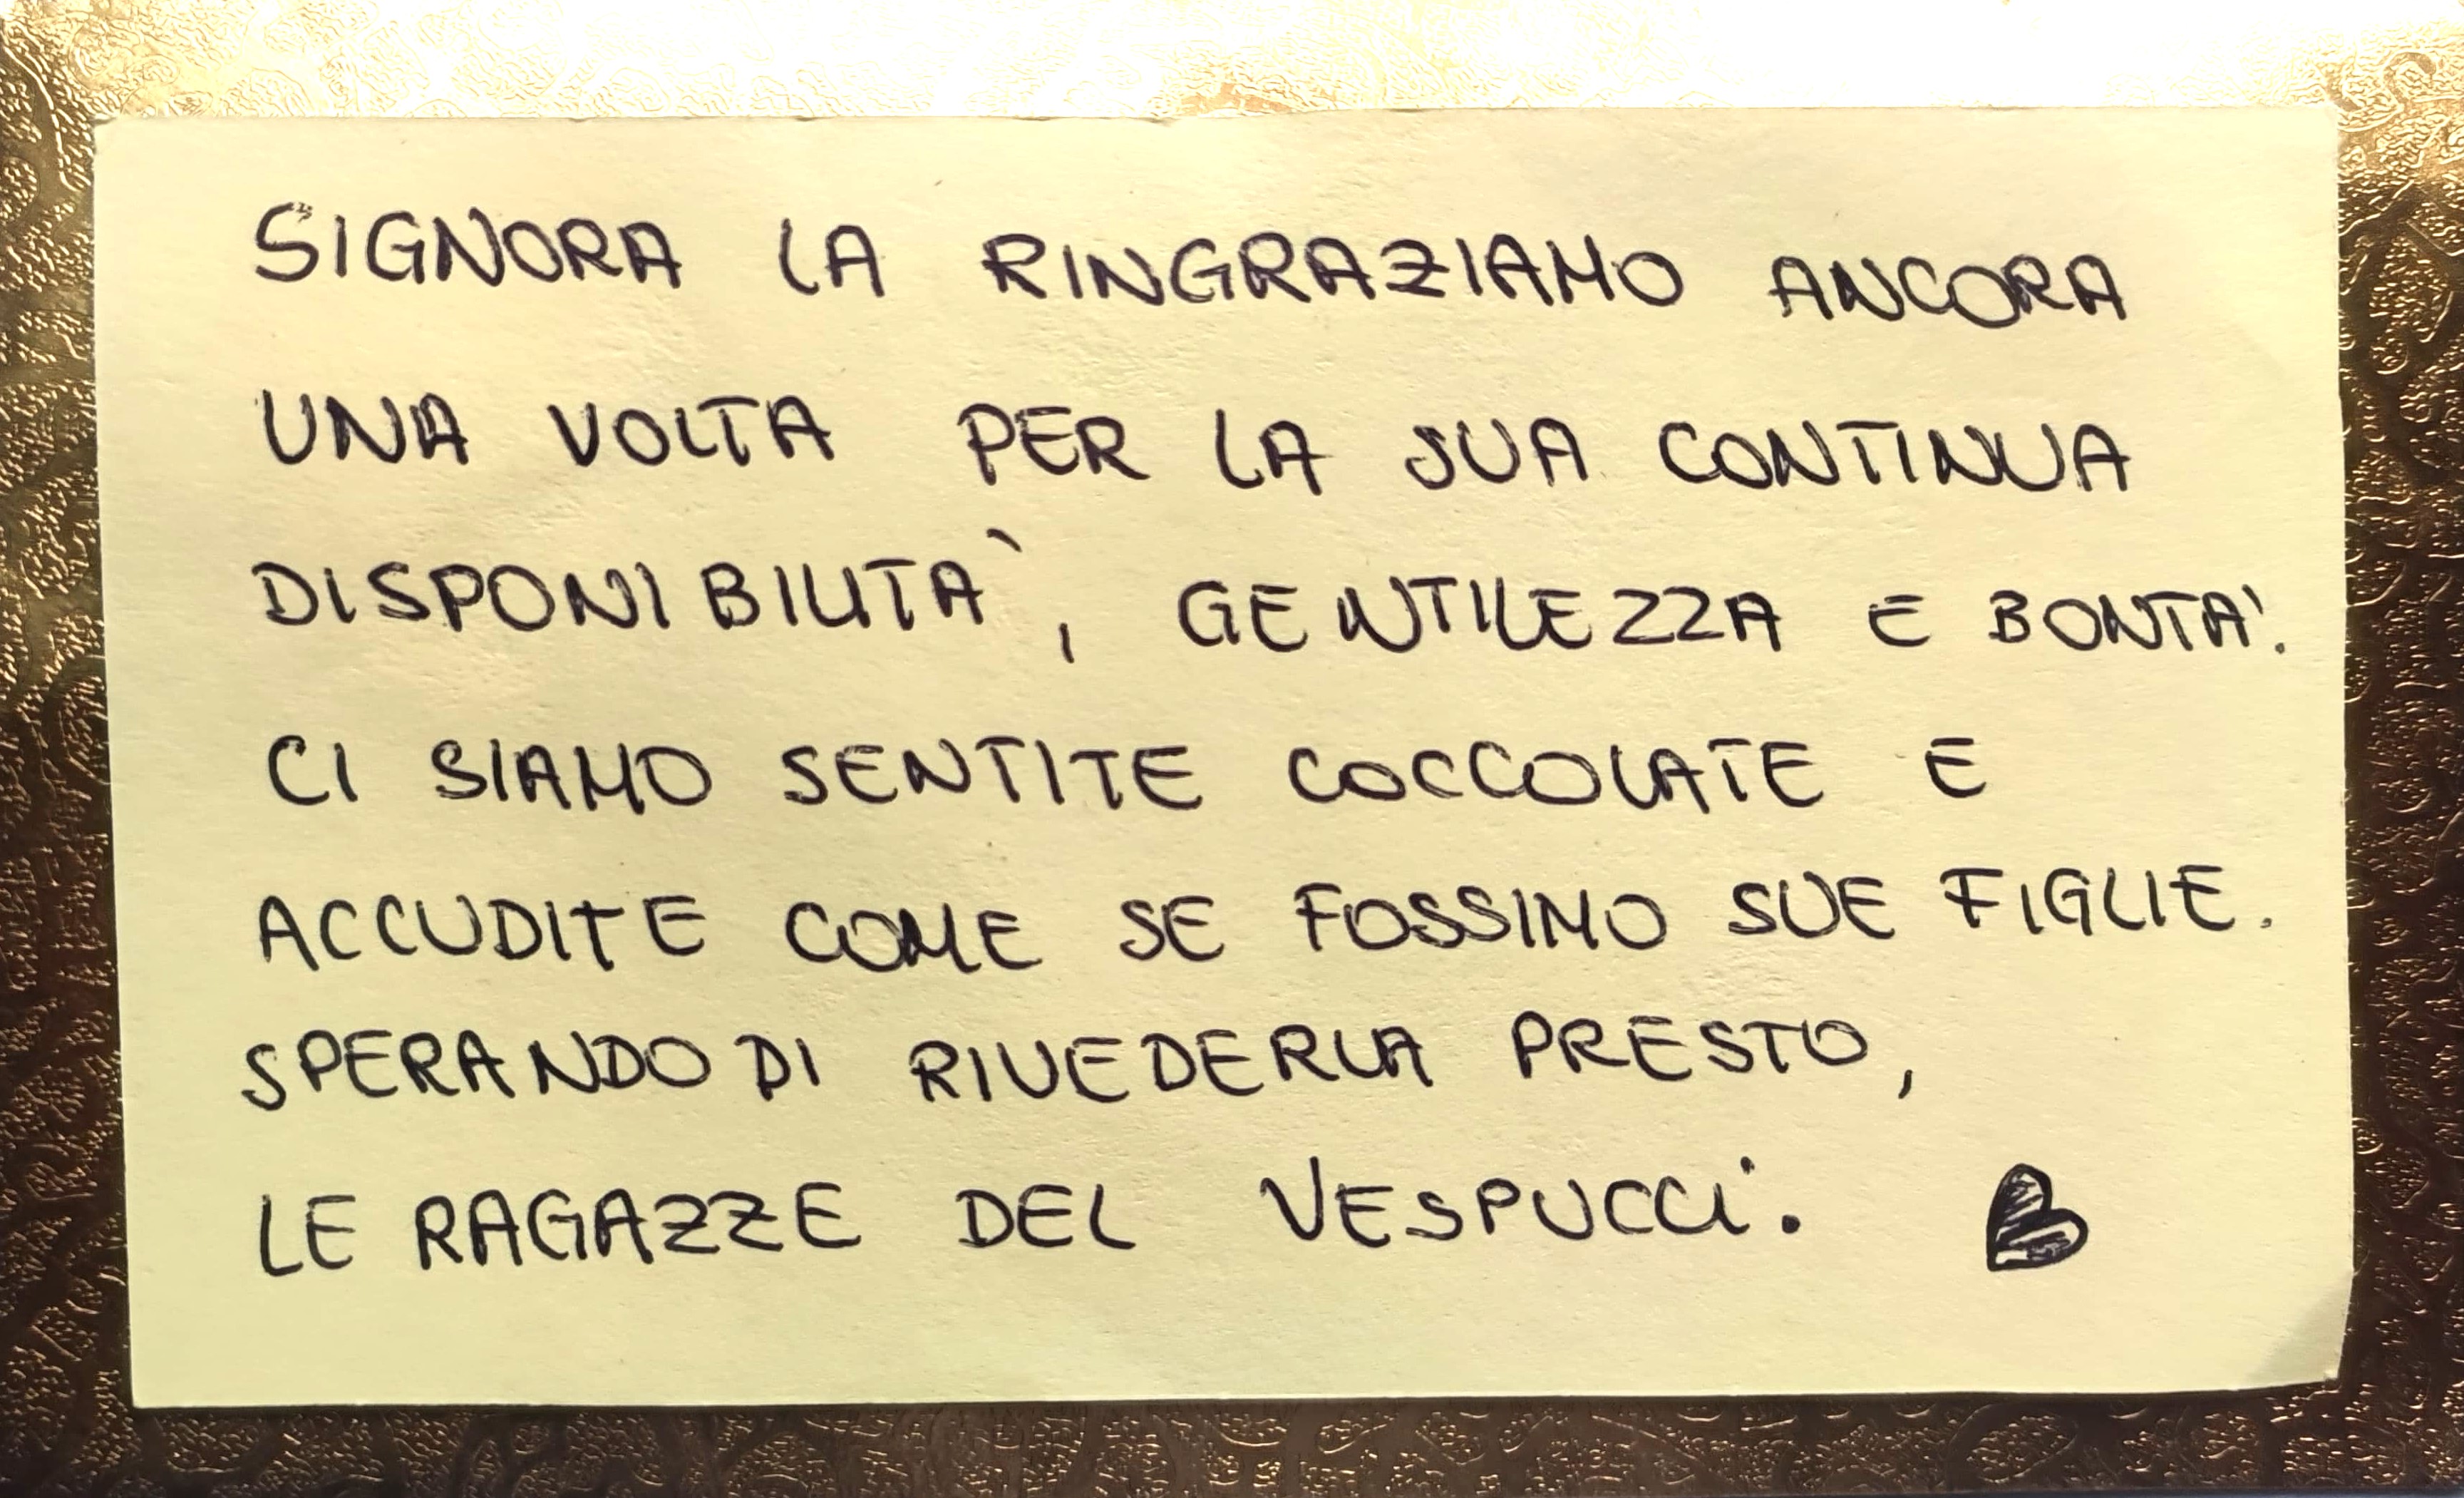 SIGNORA LA RINGRAZIAMO ANCORA
UNA VOLTA PER LA SUA CONTINUA
DISPONIBILITÀ, GENTILEZZA E BONTA'.
CI SIAMO SENTITE COCCOLATE E
ACCUDITE COME SE FOSSIMO SUE FIGLIE.
SPERANDO DI RIVEDERLA PRESTO,
LE RAGAZZE DEL VESPUCCi.